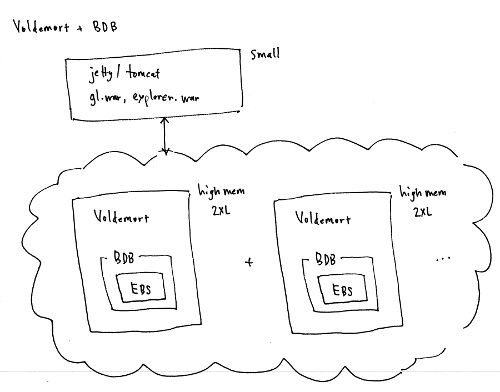 Voldemort + BDB
small
jetty / tomcat
gl.war, explorer.war
high mem
2XL
Voldemort
BDB
EBS
+
high mem
2XL
Voldemort
BDB
EBS
...